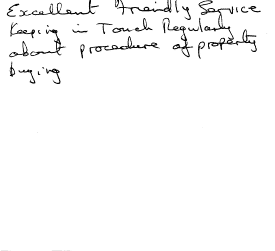 Excellent friendly Service
Keeping in Touch Regularly
about procedure of property
buying